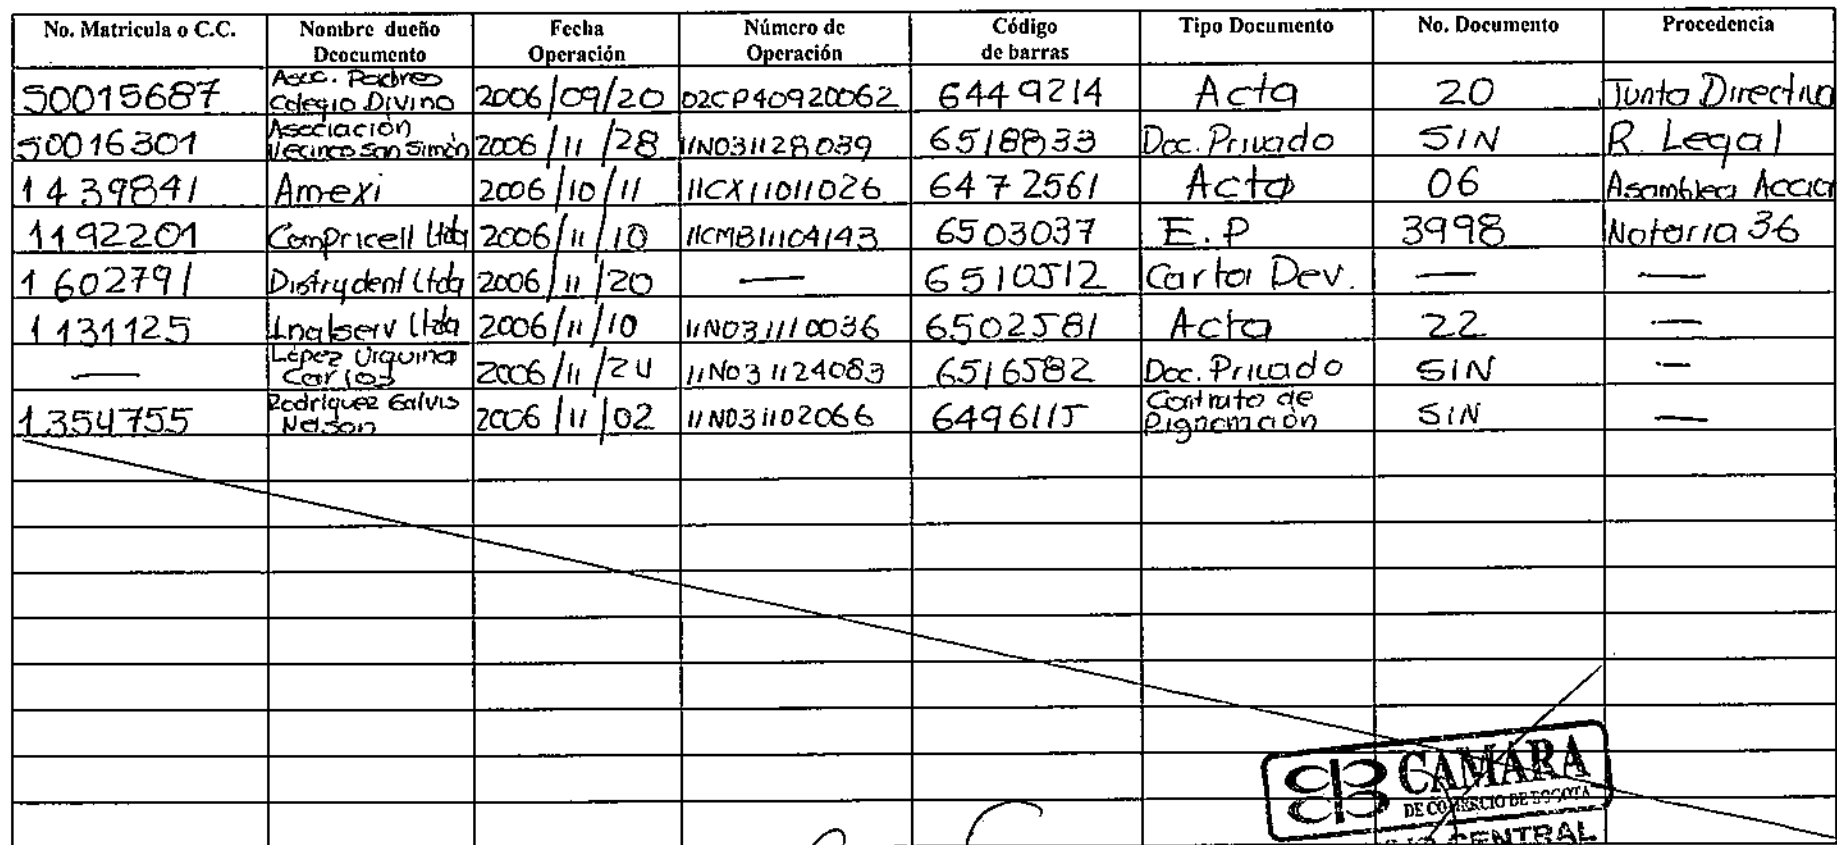 No. Matricula o C.C. Nombre dueño Dcocumento Fecha Operación Número de Operación Código de barras Tipo Documento No. Documento Procedencia
50015687 Asoc. Padres Colegio Divino 2006/09/20 02CP40920062 6449214 Acta 20 Junta Directiva
50016301 Asociación Vecinos San Simón 2006/11/28 11N031128039 6518833 Doc. Privado SIN R. Legal
1439841 Amexi 2006/10/11 11CX11011026 6472561 Acta 06 Asamblea Accio
1192201 Compricell Ltda 2006/11/10 11CMB1104143 6503037 E.P 3998 Notaria 36
1602791 Distrydent Ltda 2006/11/20 — 6510512 Carta Dev. — —
1131125 Inalserv Ltda 2006/11/10 11N031110036 6502581 Acta 22 —
— López Urquina Carlos 2006/11/24 11N031124083 6516582 Doc. Privado SIN —
1354755 Rodríguez Galvis Nelson 2006/11/02 11N031102066 6496115 Contrato de Pignoración SIN —
CAMARA
DE COMERCIO DE BOGOTA
CENTRAL